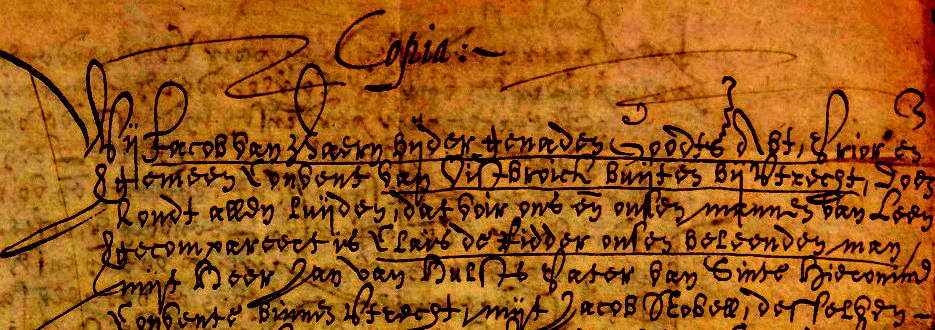 Copia:~
Wij Jacob van Baern bijder genaden Goodts Abt, Prior en
gemeen Convent van Oistbroick buijten bij Utrecht, Doen
kondt allen luijden, dat voir ons en onsen mannen van Leen
gecompareert is Claes de Ridder onsen beleenden man,
mijt Heer Jan van Hulst Pater van Sinte Hieronimus
Convente binnen Utrecht, mijt Jacob desselven